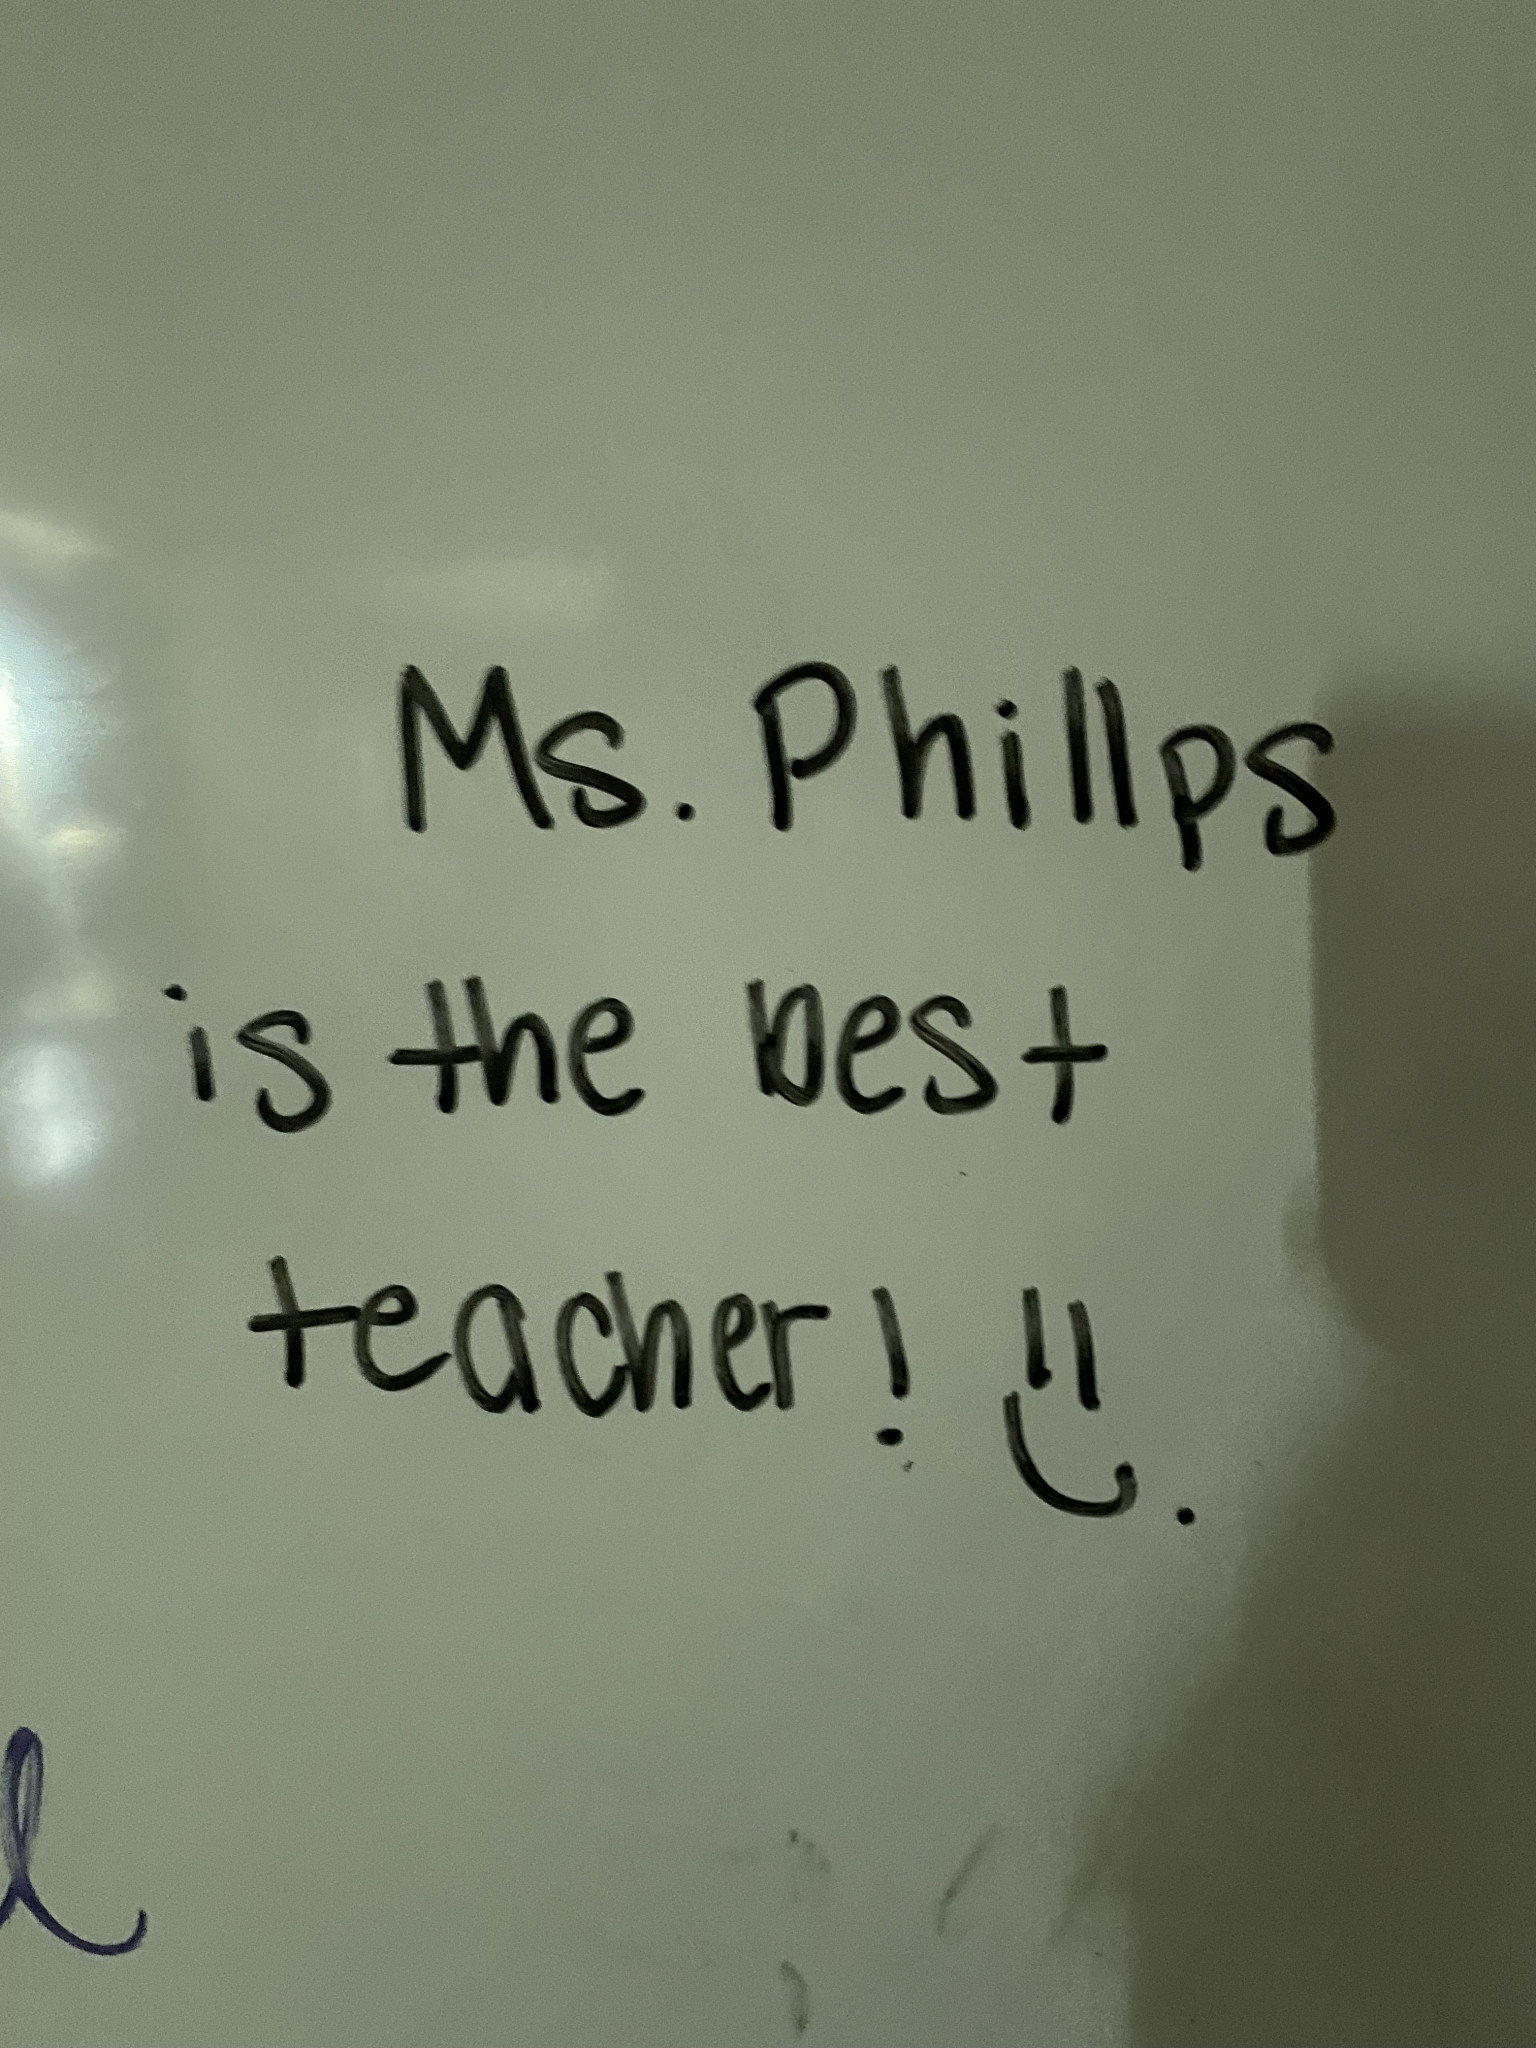 Ms. Phillps
is the best
teacher! :)
l